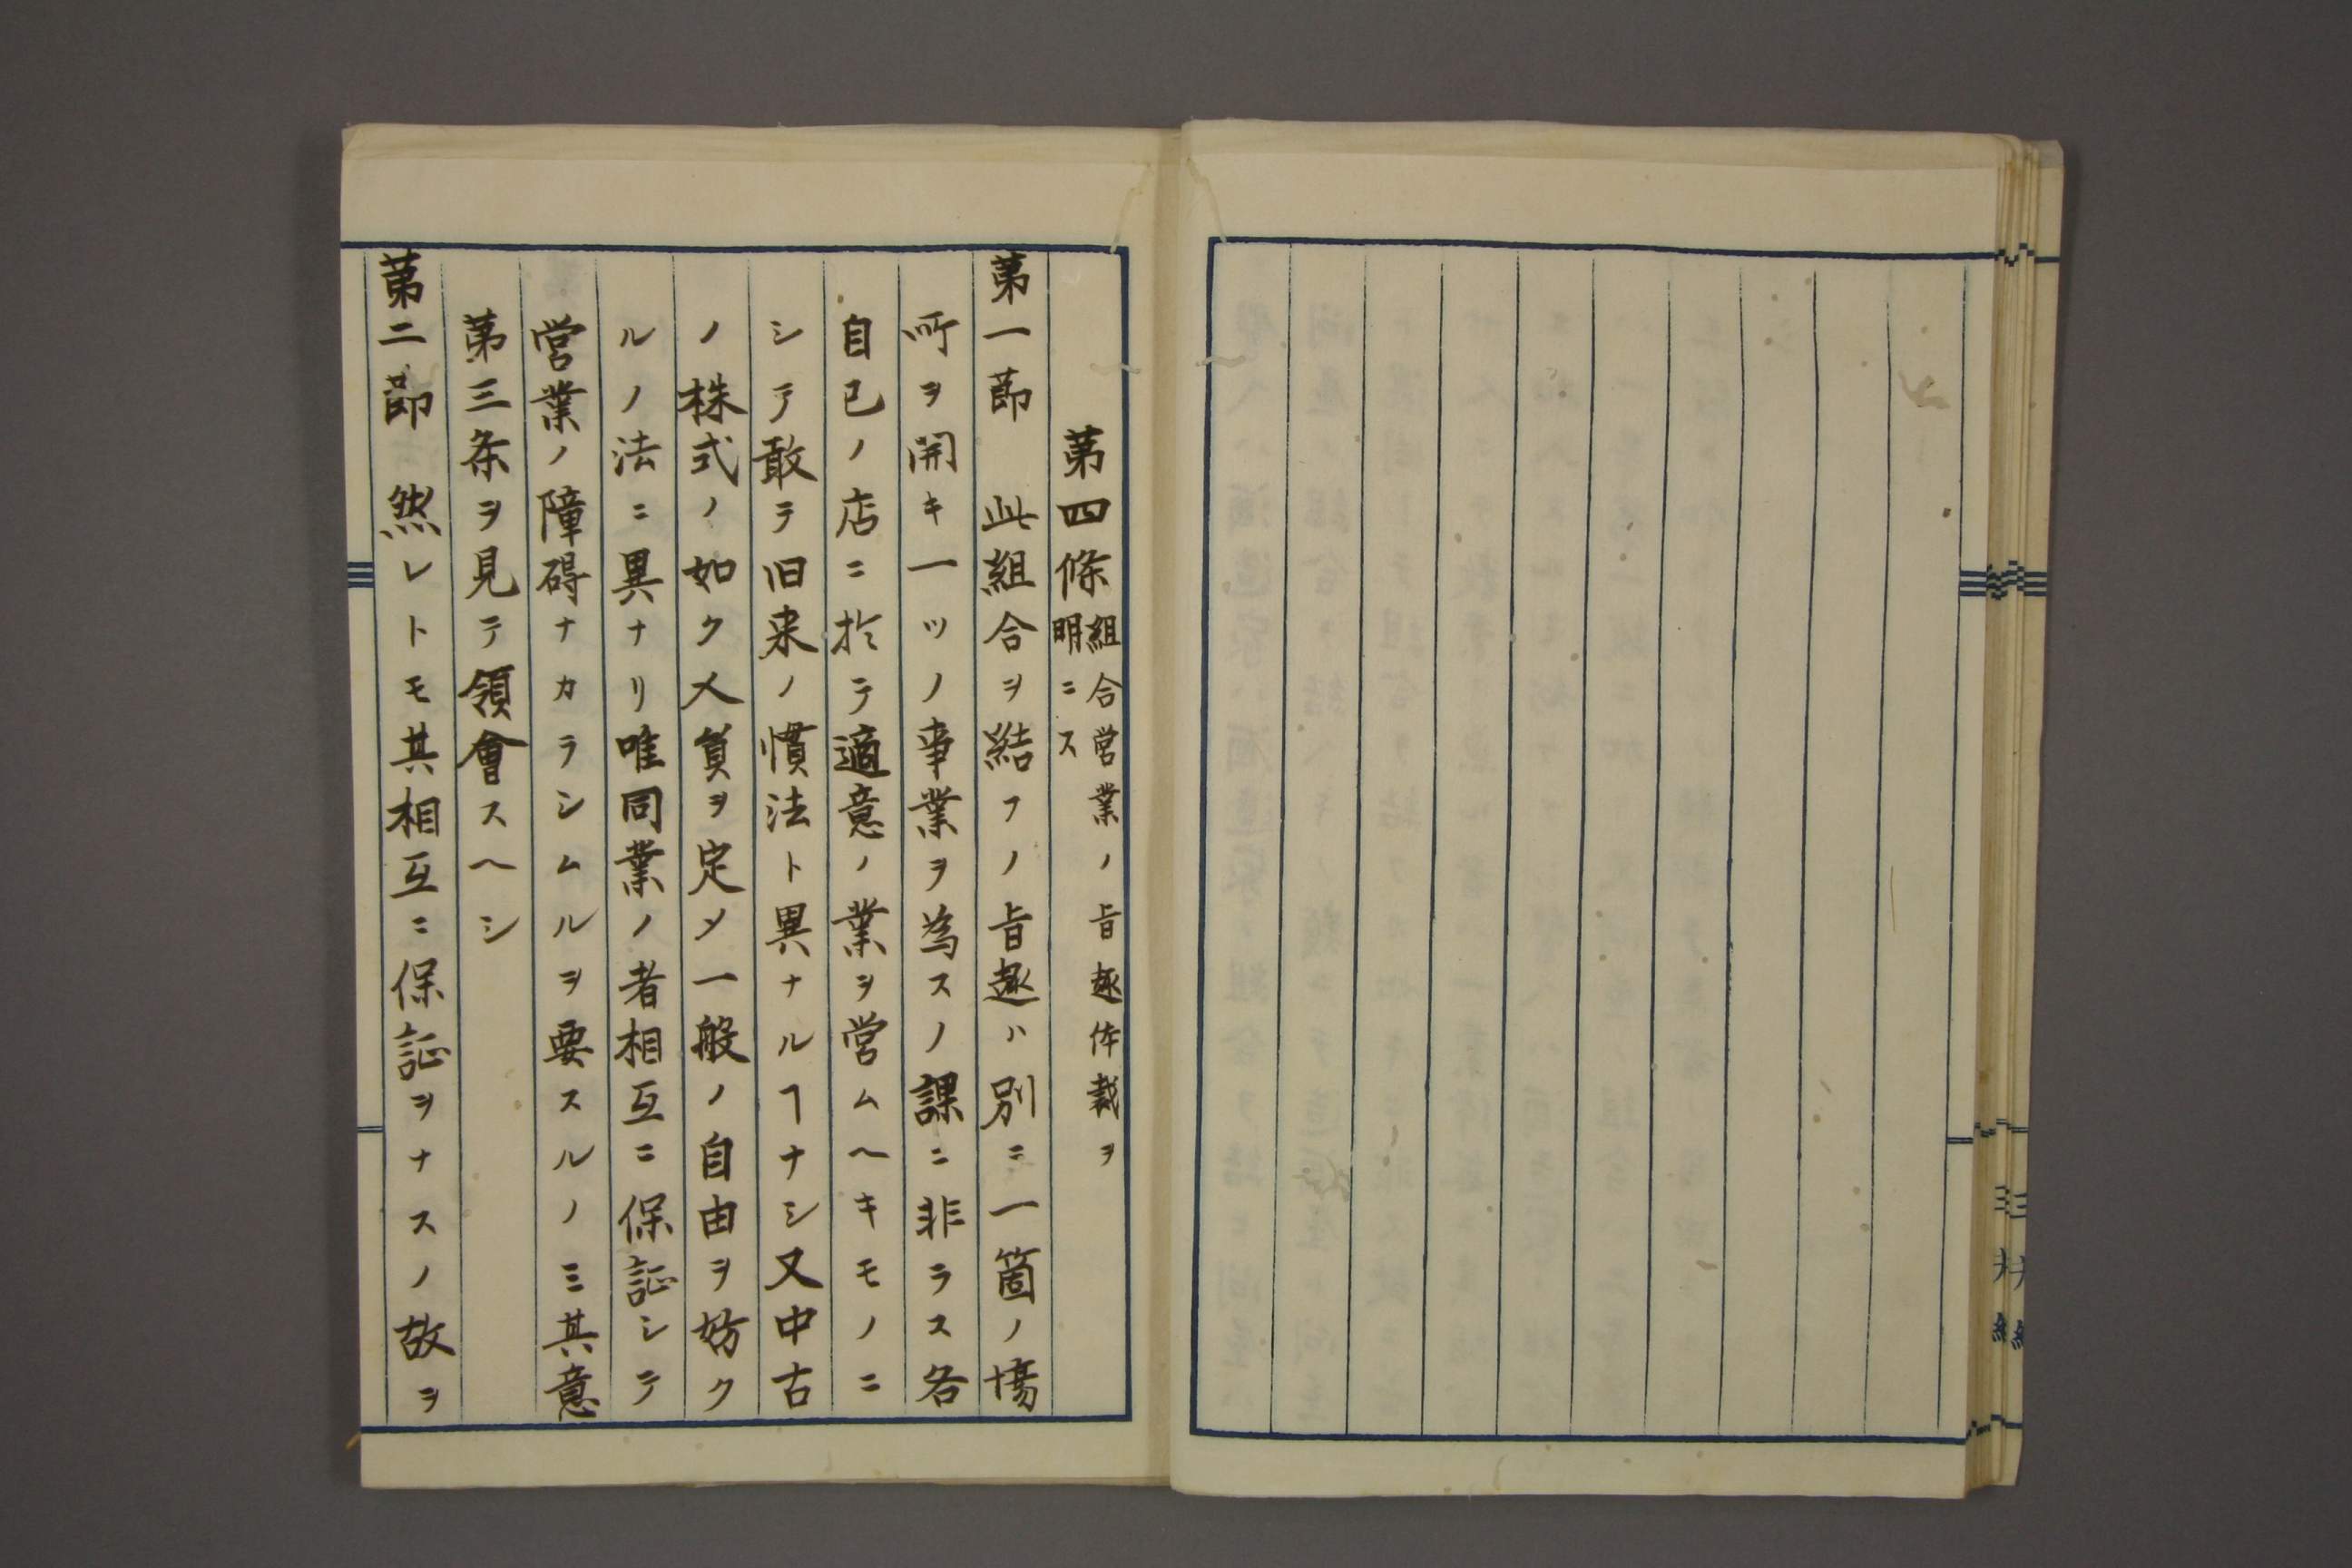 第四條 組合営業ノ旨趣体裁ヲ
明ニス
第一節　此組合ヲ結フノ旨趣ハ別ニ一箇ノ場
所ヲ開キ一ツノ事業ヲ為スノ課ニ非ラス各
自己ノ店ニ於テ適意ノ業ヲ営ムヘキモノニ
シテ敢テ旧来ノ慣法ト異ナルヿナシ又中古
ノ株式ノ如ク人員ヲ定メ一般ノ自由ヲ妨ク
ルノ法ニ異ナリ唯同業ノ者相互ニ保証シテ
営業ノ障碍ナカラシムルヲ要スルノミ其意
第三条ヲ見テ領會スヘシ
第二節　然レトモ其相互ニ保証ヲナスノ故ヲ